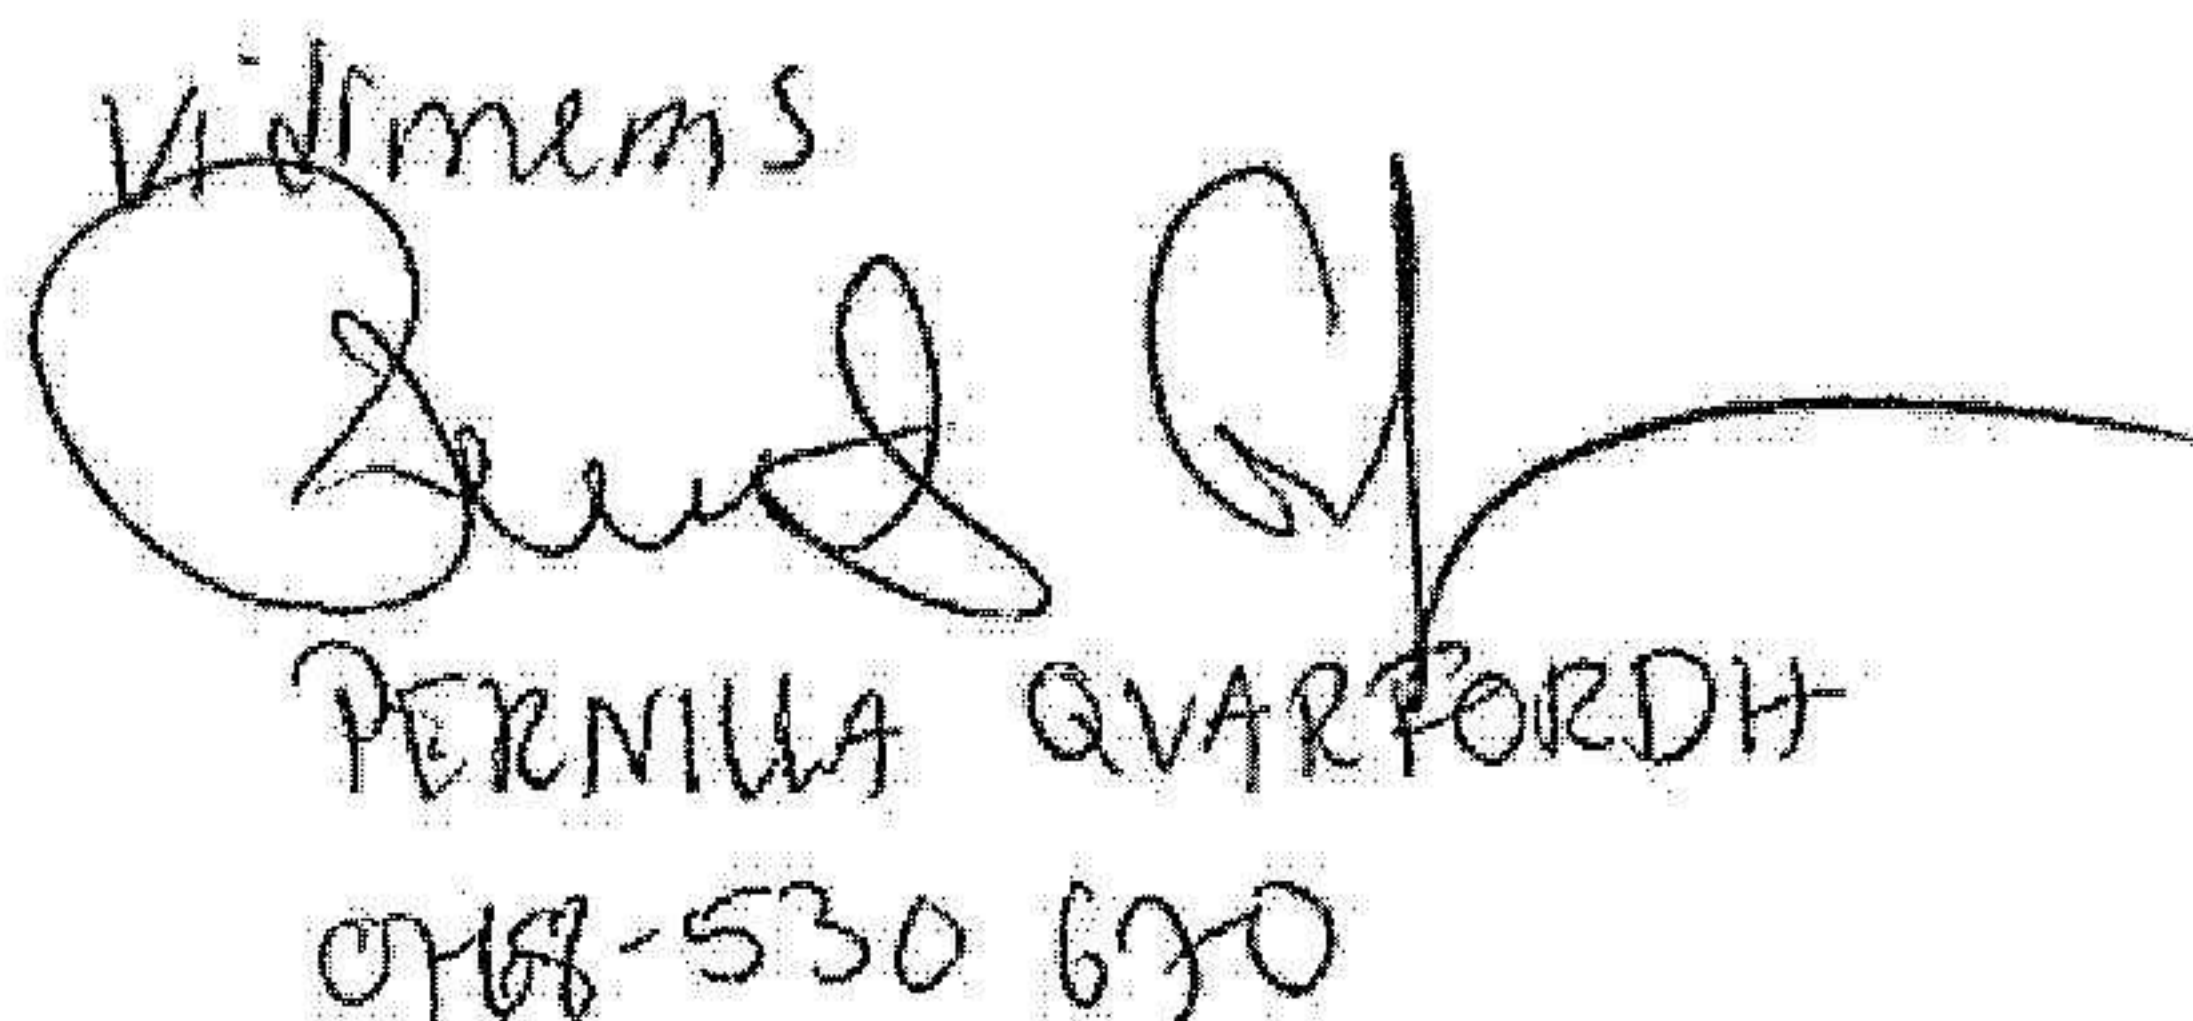 Vidimeras
PERNILLA QVARFORDH
0768-530 670